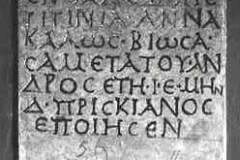 ΤΙΤΙΝΙΑ·ΑΝΝΑ
ΚΑΛΩΣ·ΒΙΩΣΑ·
ΣΑΜΕΤΑΤΟΥΑΝ
ΔΡΟΣΕΤΗ·Ι·Ε·ΜΗΝ
Δ·ΠΡΙΣΚΙΑΝΟΣ
ΕΠΟΙΗΣΕΝ